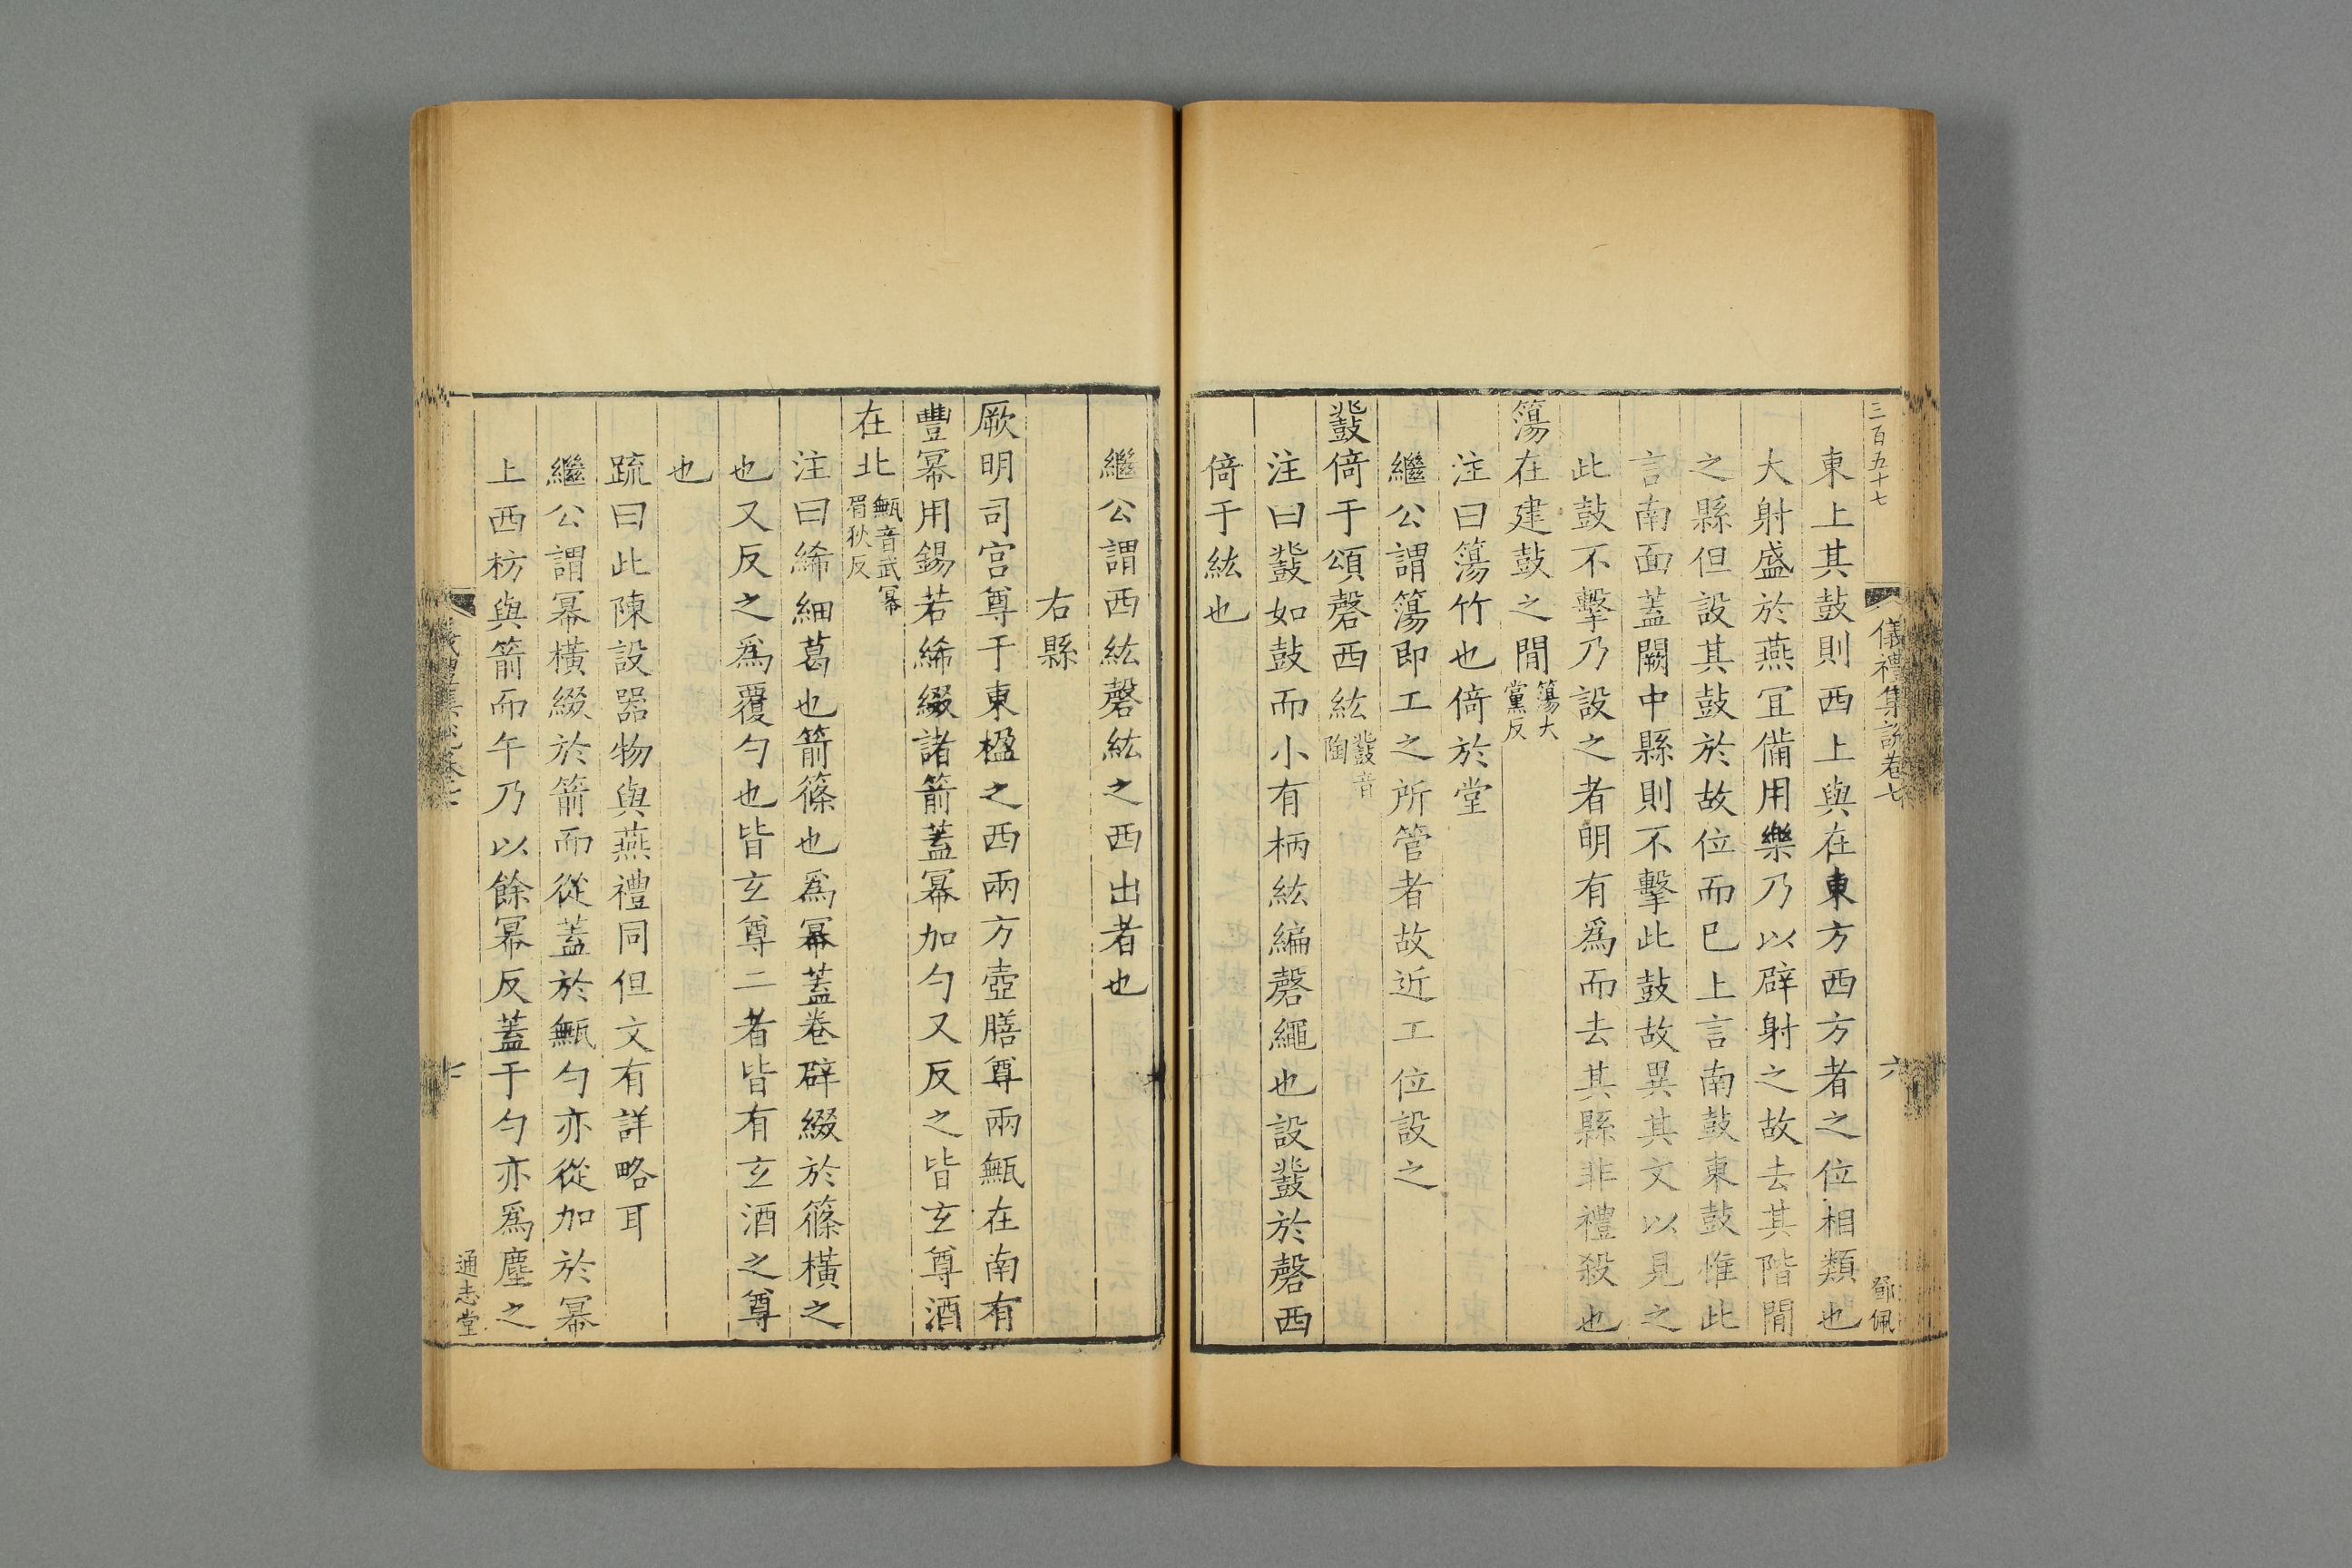 三百五十七
儀禮集說卷七
六
鄧佩
東上其鼓則西上與在東方西方者之位相類也
大射盛於燕宜備用樂乃以辟射之故去其階閒
之縣但設其鼓於故位而已上言南鼓東鼓惟此
言南面蓋闕中縣則不擊此鼓故異其文以見之
此鼓不擊乃設之者明有爲而去其縣非禮殺也
簜在建鼓之閒簜大
黨反
注曰簜竹也倚於堂
繼公謂簜即工之所管者故近工位設之
鼗倚于頌磬西紘鼗音
陶
注曰鼗如鼓而小有柄紘編磬繩也設鼗於磬西
倚于紘也
繼公謂西紘磬紘之西出者也
右縣
厥明司宮尊于東楹之西兩方壺膳尊兩甒在南有
豐冪用錫若絺綴諸箭蓋冪加勺又反之皆玄尊酒
在北甒音武冪
眉狄反
注曰絺細葛也箭篠也爲冪蓋卷辟綴於篠橫之
也又反之爲覆勺也皆玄尊二者皆有玄酒之尊
也
疏曰此陳設器物與燕禮同但文有詳略耳
繼公謂冪橫綴於箭而從蓋於甒勺亦從加於冪
上西枋與箭而午乃以餘冪反蓋于勺亦爲塵之
儀禮集說卷七
七
通志堂